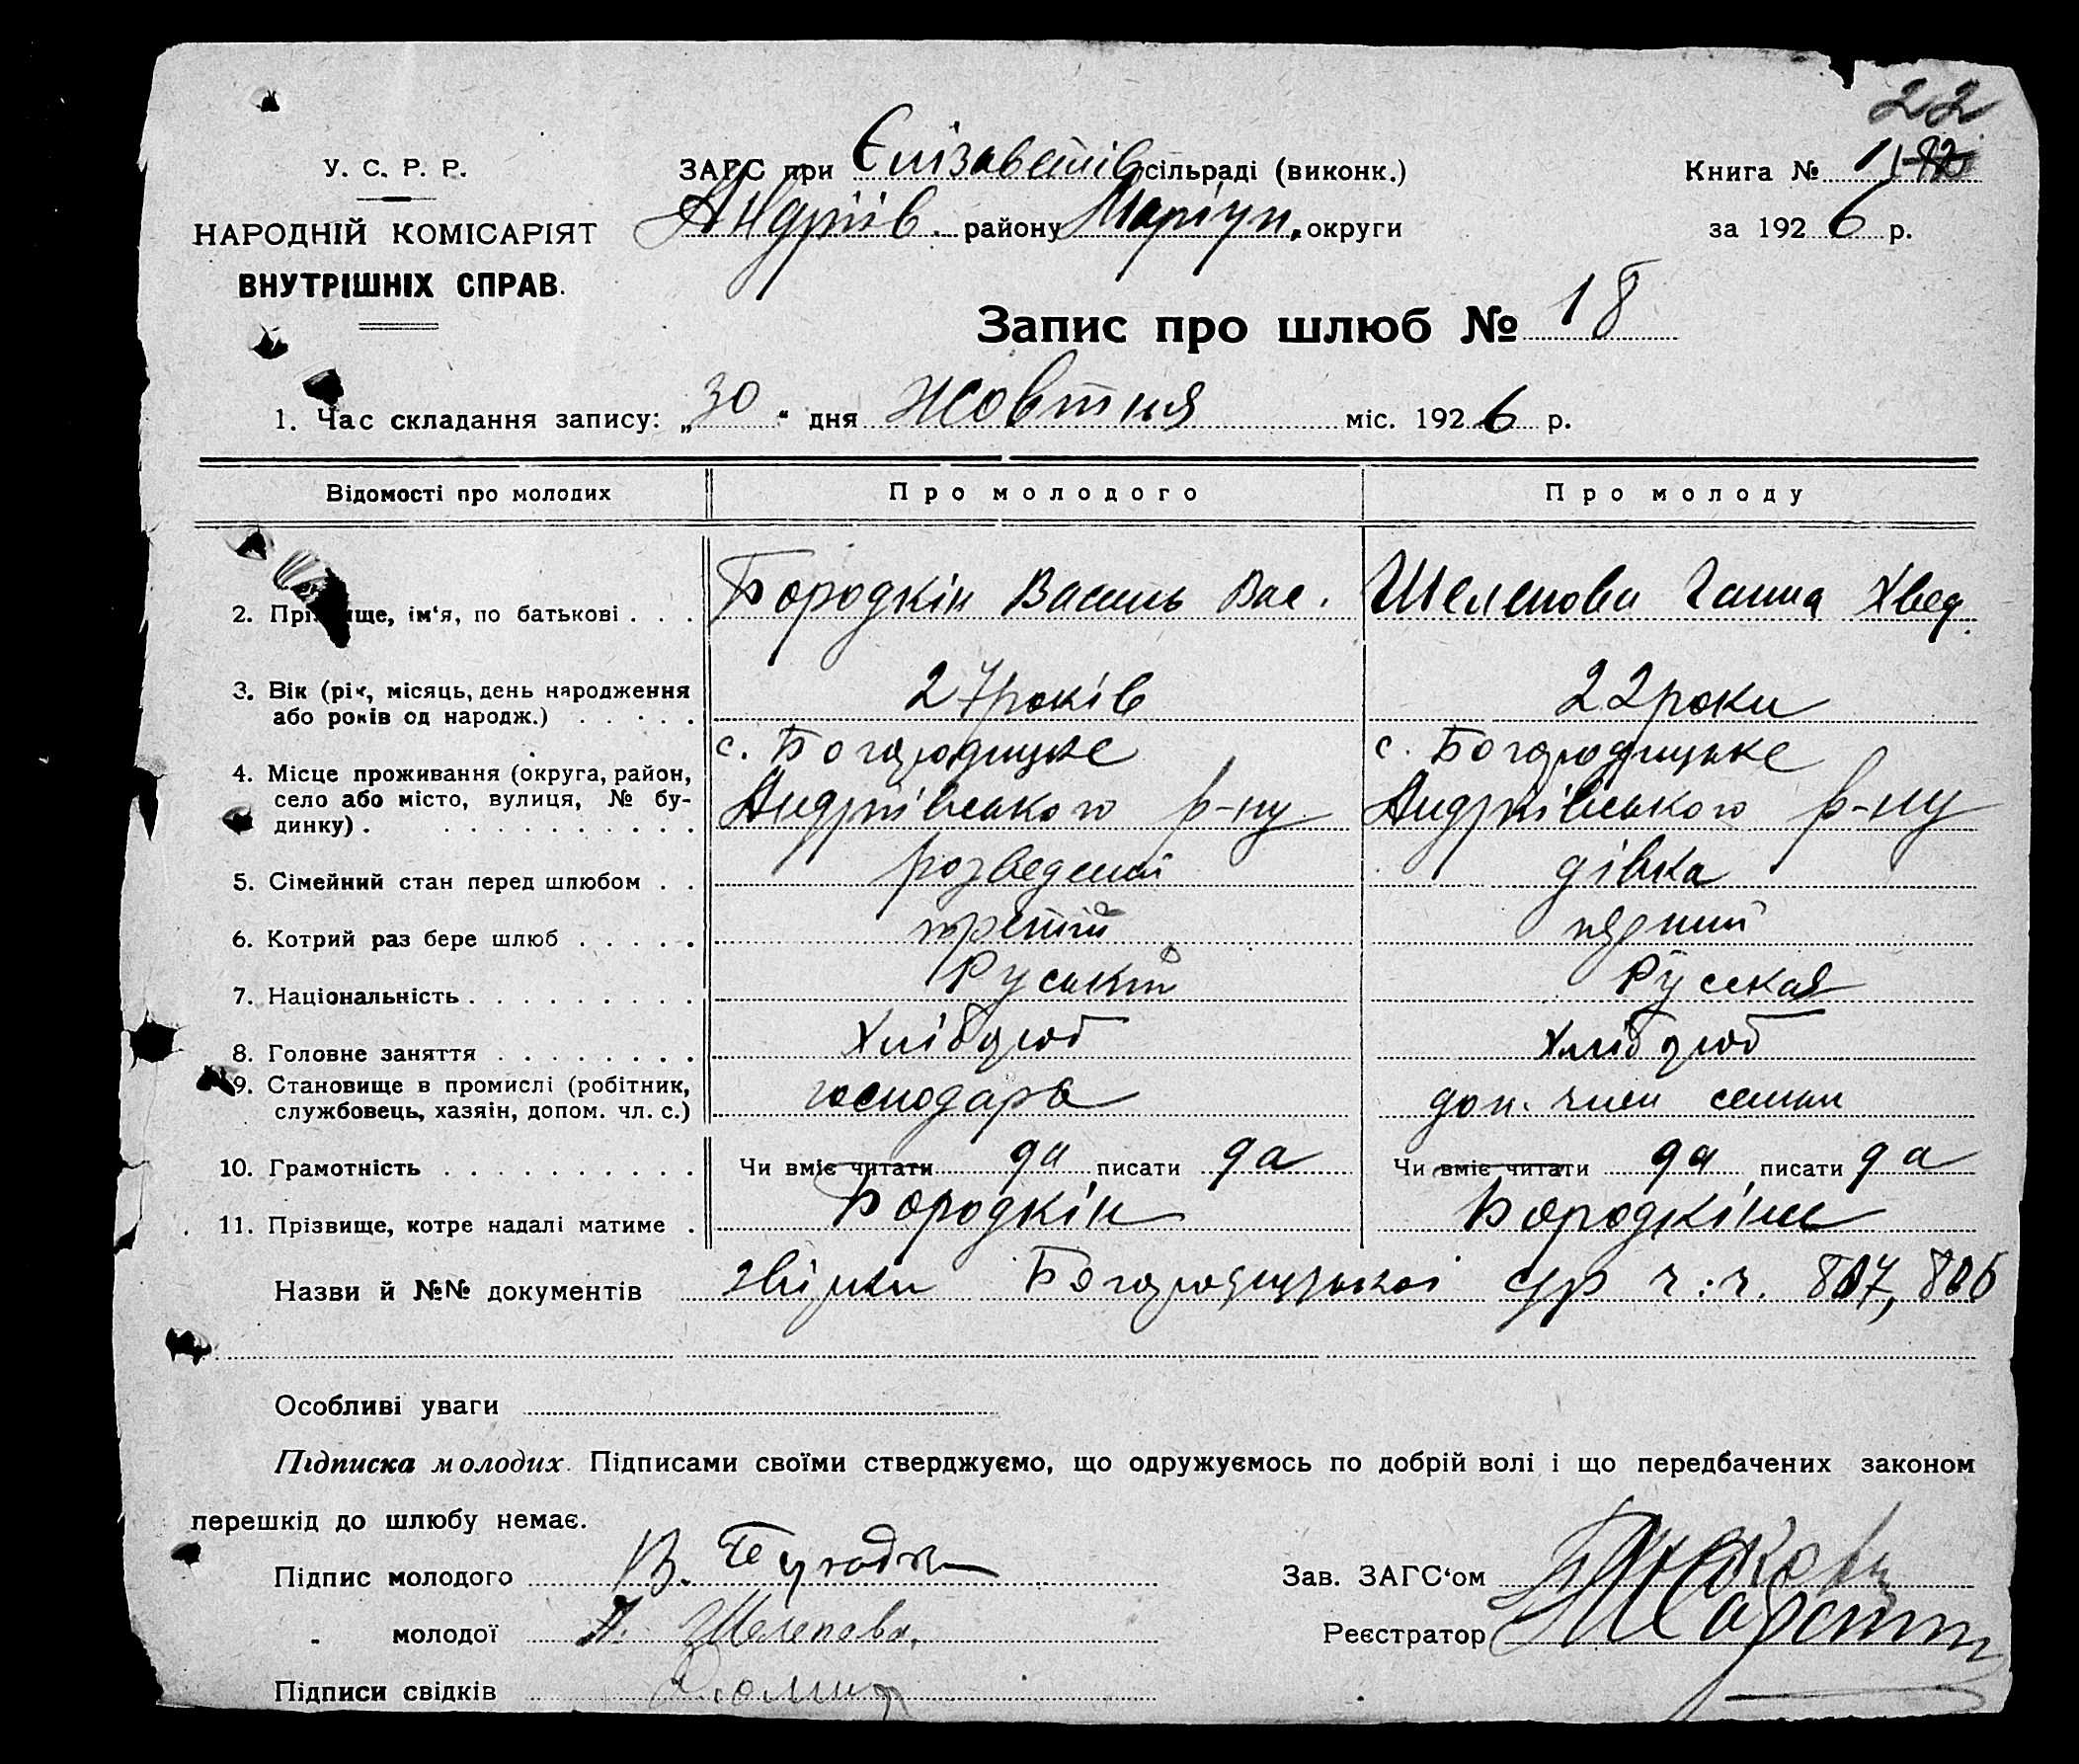 22
У. С. Р. Р.
НАРОДНІЙ КОМІСАРІЯТ
ВНУТРІШНІХ СПРАВ.
ЗАГС при Єлізаветів сільраді (виконк.)
Андріїв. району Маріуп. округи
Книга № 1
за 1926 р.
Запис про шлюб № 18
1. Час складання запису: „30“ дня жовтня міс. 1926 р.
Відомості про молодих Про молодого Про молоду
2. Прізвище, ім‘я, по батькові . . . Бородкін Василь Вас. Шелепова Ганна Хвед.
3. Вік (рік, місяць, день народження або років од народж.) . . . . . 27 років 22 роки
4. Місце проживання (округа, район, село або місто, вулиця, № будинку) . с. Богородицьке Андріївського р-ну с. Богородицьке Андріївського р-ну
5. Сімейний стан перед шлюбом . . розведений дівка
6. Котрий раз бере шлюб . . . . . третій перший
7. Національність . . . . . . . . . Руський Русская
8. Головне заняття . . . . . . . . Хлібороб Хлібороб
9. Становище в промислі (робітник, службовець, хазяін, допом. чл. с.) господарь доп. член семьи
10. Грамотність . . . . . . . . . . Чи вміє читати да писати да Чи вміє читати да писати да
11. Прізвище, котре надалі матиме . Бородкін Бородкіна
Назви й №№ документів Богородицької с/р ч.ч. 807, 806
Особливі уваги
Підписка молодих. Підписами своїми стверджуємо, що одружуємось по добрій волі і що передбачених законом
перешкід до шлюбу немає.
Підпис молодого В. Зав. ЗАГС‘ом
„ молодої А. Шелепова. Реєстратор
Підписи свідків